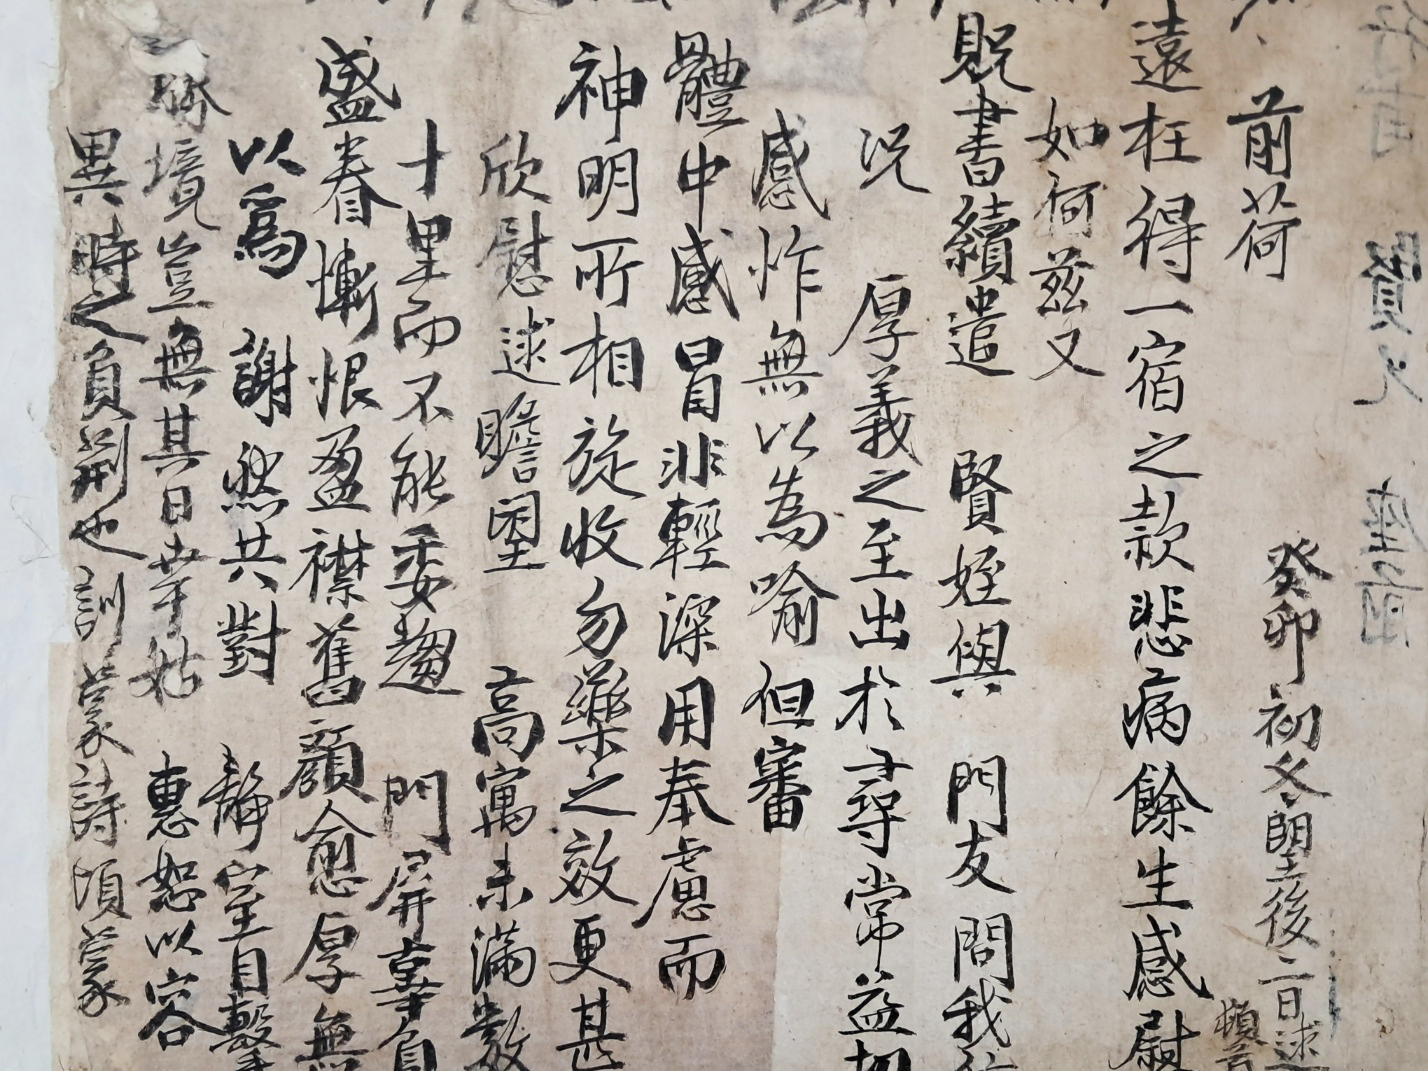 前荷
癸卯初冬望後二日逑
遠枉得一宿之款悲病餘生感慰
如何茲又
貺書續遣 賢姪與 門友問我
況 厚義之至出於尋常益切
感怍無以為喻但審
體中感冒非輕深用奉慮而
神明所相旋收勿藥之效更甚
欣慰逑瞻望 高寓未滿數
十里而不能委趨 門屏辜負
盛眷慚恨盈襟舊顏愈厚無
以爲 謝然共對 靜室目擊
境豈無其日幸姑 惠恕以容
異時之負荊也訓蒙詩頃蒙